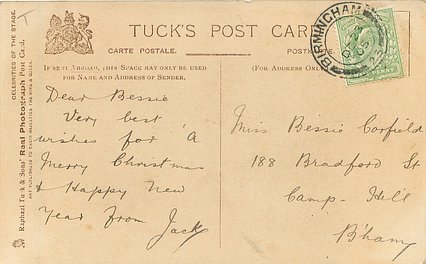 TUCK'S POST CARD
CARTE POSTALE.
POST
IF SENT ABROAD, THIS SPACE MAY ONLY BE USED
FOR NAME AND ADDRESS OF SENDER.
(FOR ADDRESS ON
CELEBRITIES OF THE STAGE.
Raphael Tuck & Sons' Real Photograph Post Card.
ART PUBLISHERS TO THEIR MAJESTIES THE KING & QUEEN.
BIRMINGHAM
Dear Bessie
Very best
wishes for A
Merry Christmas
& Happy New
Year From Jack
Miss Bessie Corfield
188 Bradford St
Camp-Hill
B'ham